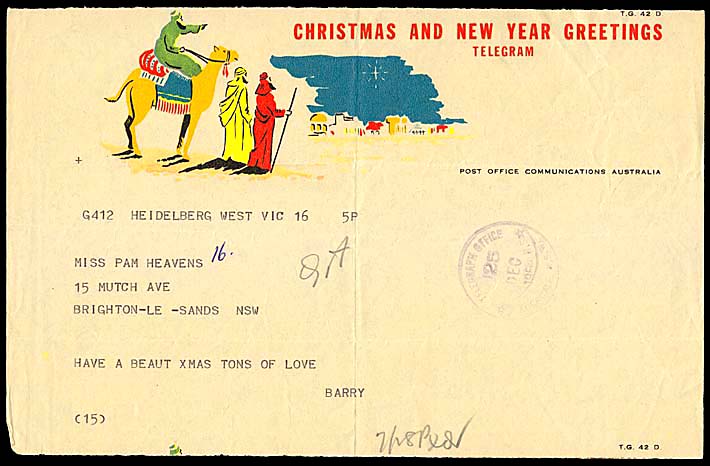 T.G. 42 D
CHRISTMAS AND NEW YEAR GREETINGS
TELEGRAM
+
POST OFFICE COMMUNICATIONS AUSTRALIA
G412 HEIDELBERG WEST VIC 16 5P
MISS PAM HEAVENS 16.
15 MUTCH AVE
BRIGHTON-LE -SANDS NSW
TELEGRAPH OFFICE
DEC
HAVE A BEAUT XMAS TONS OF LOVE
BARRY
(15)
T.G. 42 D.